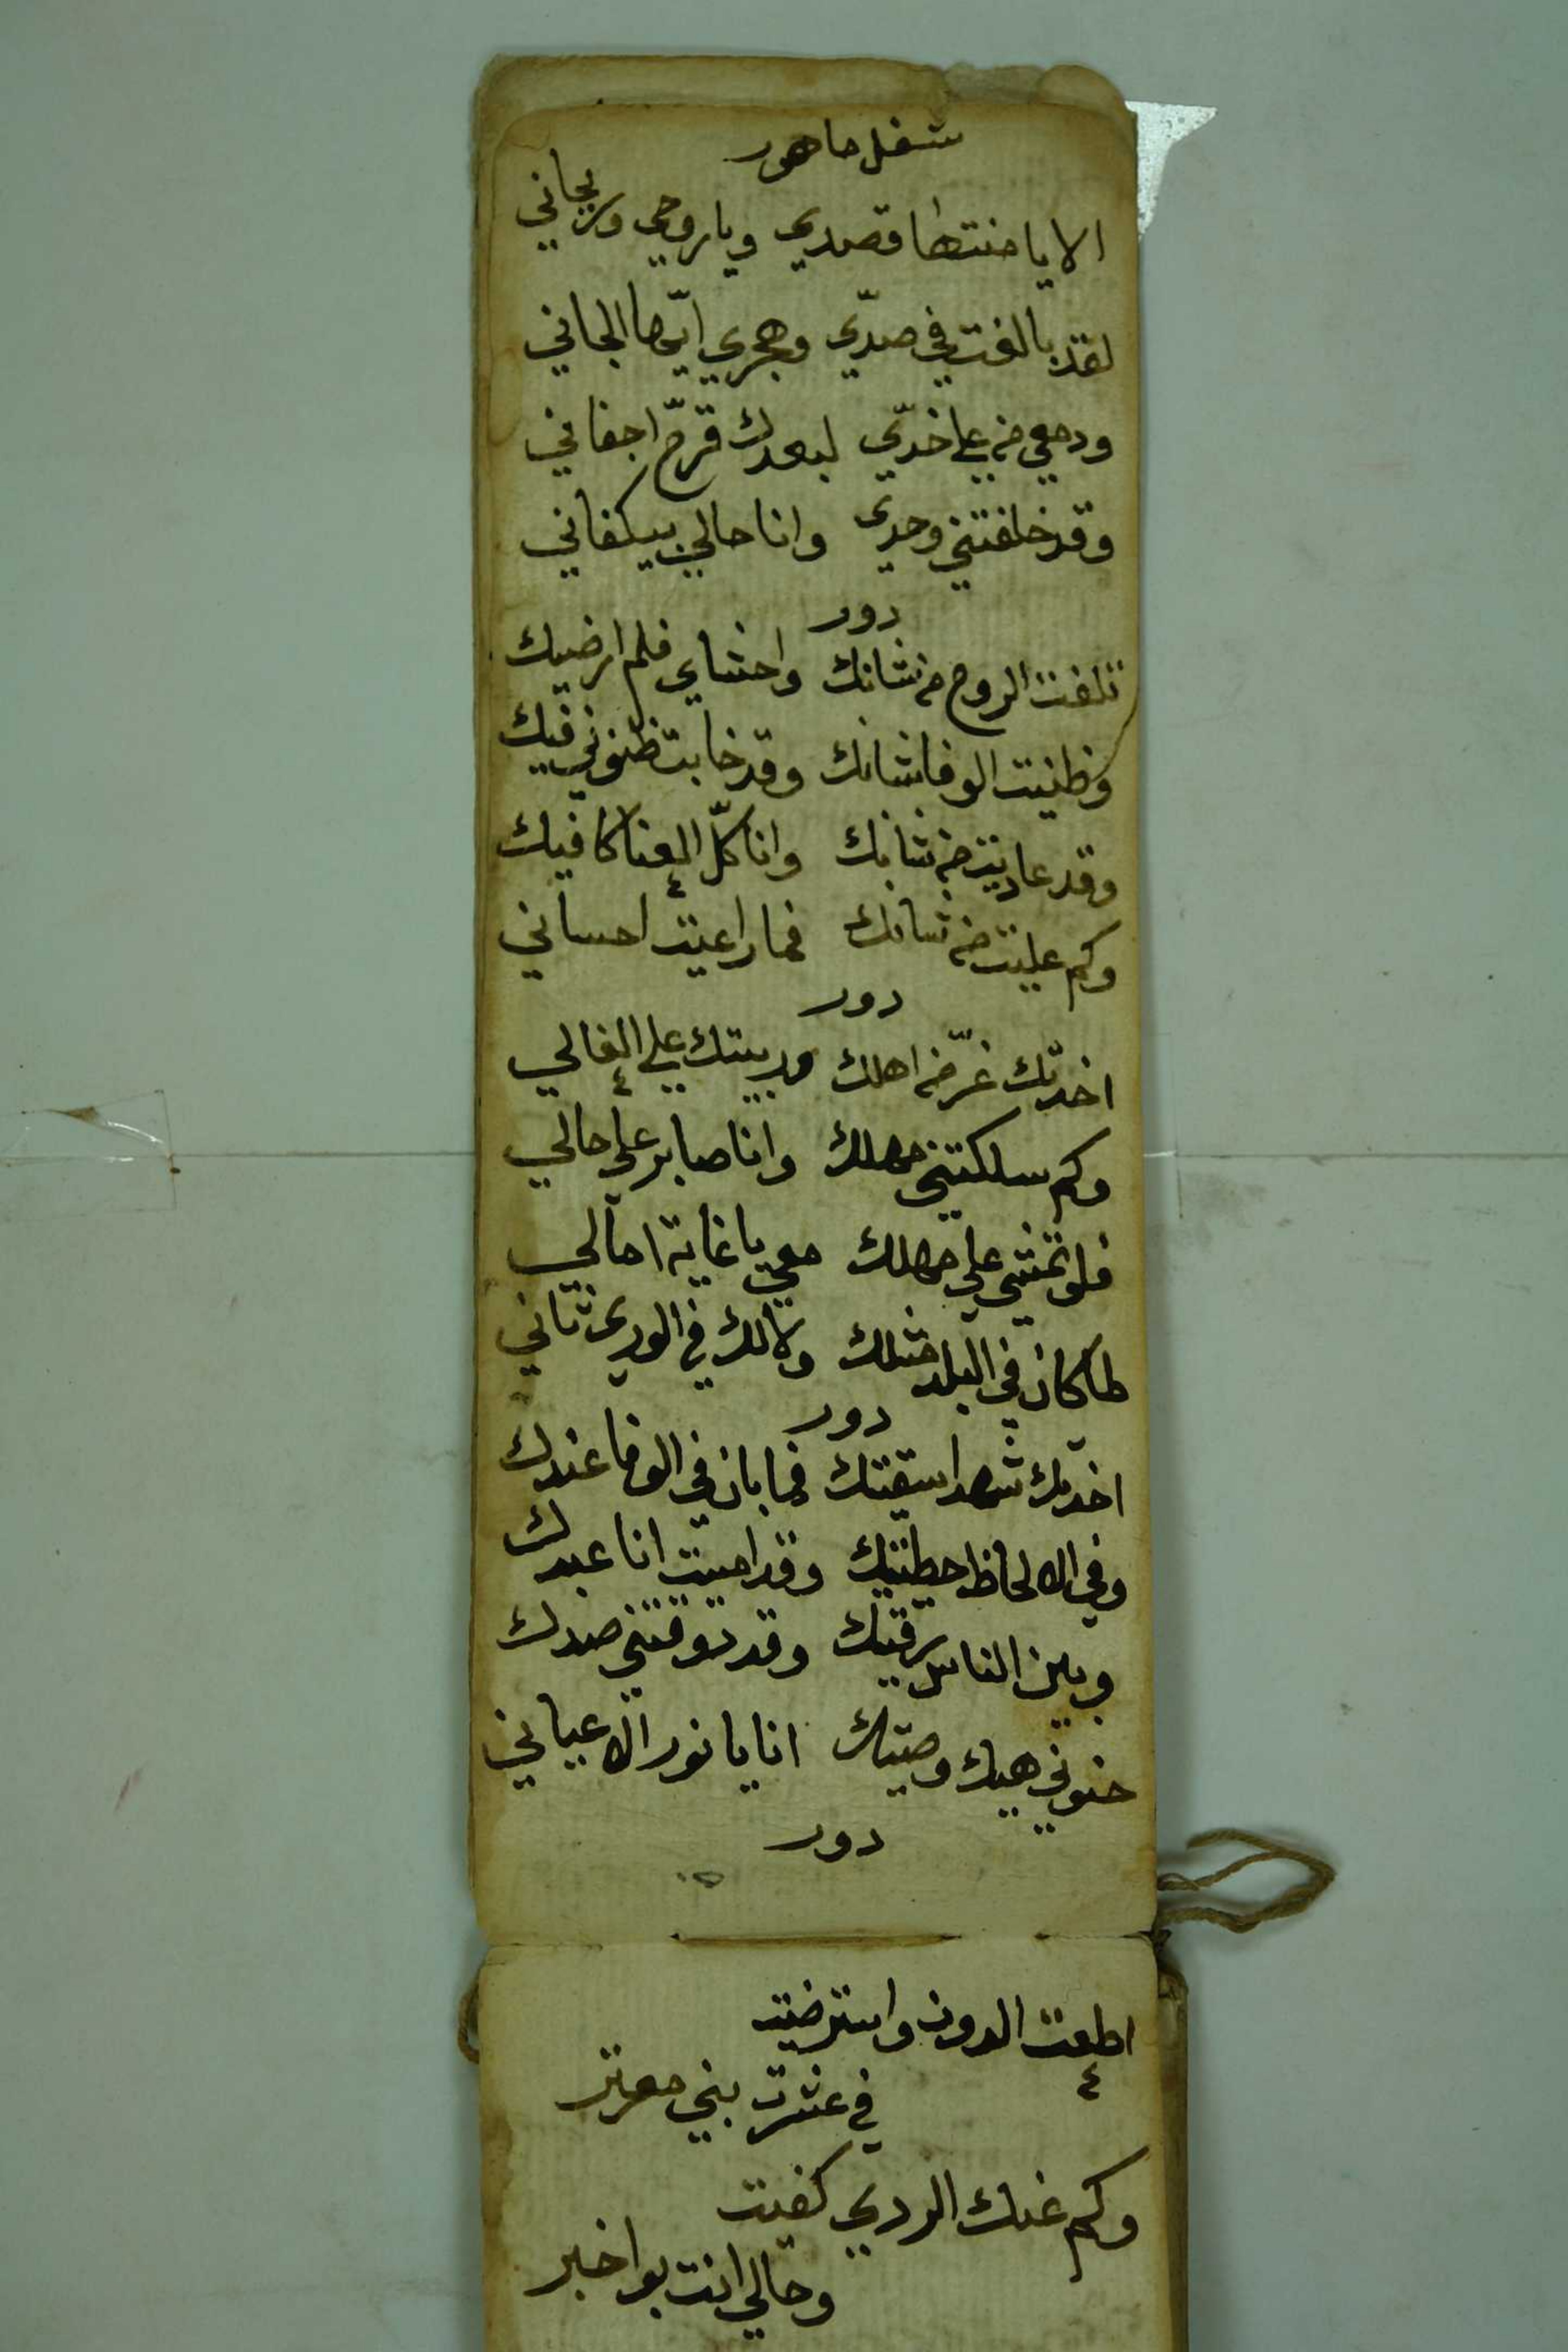 شغل ماهور
الا يا منتها قصدي ويا روحي وريحاني
لقد بالغت في صدّي وهجري ايّها الجاني
ودمعي من على خدّي لبعدك قرّح اجفاني
وقد خلفتني وحدي وانا حالي بيكفاني
دور
تلفت الروح من شانك واحشاي فلم ارضيك
وظنيت الوفا شانك وقد خابت ظنوني فيك
وقد عاديت من شانك وانا كلّ العنا كافيك
وكم عليت من شانك فما راعيت احساني
دور
اخدتك غرّ من اهلك وربيتك على الغالي
وكم سلكتني مهلك وانا صابر على حالي
فلو تمشي على مهلك معي يا غاية امالي
لما كان في البلد مثلك ولا لك في الورى ثاني
دور
اخدتك شهد اسقيتك فما بان في الوفا عندك
وفي الالحاظ حطيتك وقد امسيت انا عبدك
وبين الناس رقيتك وقد دوقتني صدك
خنوني هيك وصيتك انا يا نور الاعياني
دور
اطعت الدون واسترضيت
في عشرت بني معرتر
وكم عنك الردي كفيت
وحالي انت بو اخبر